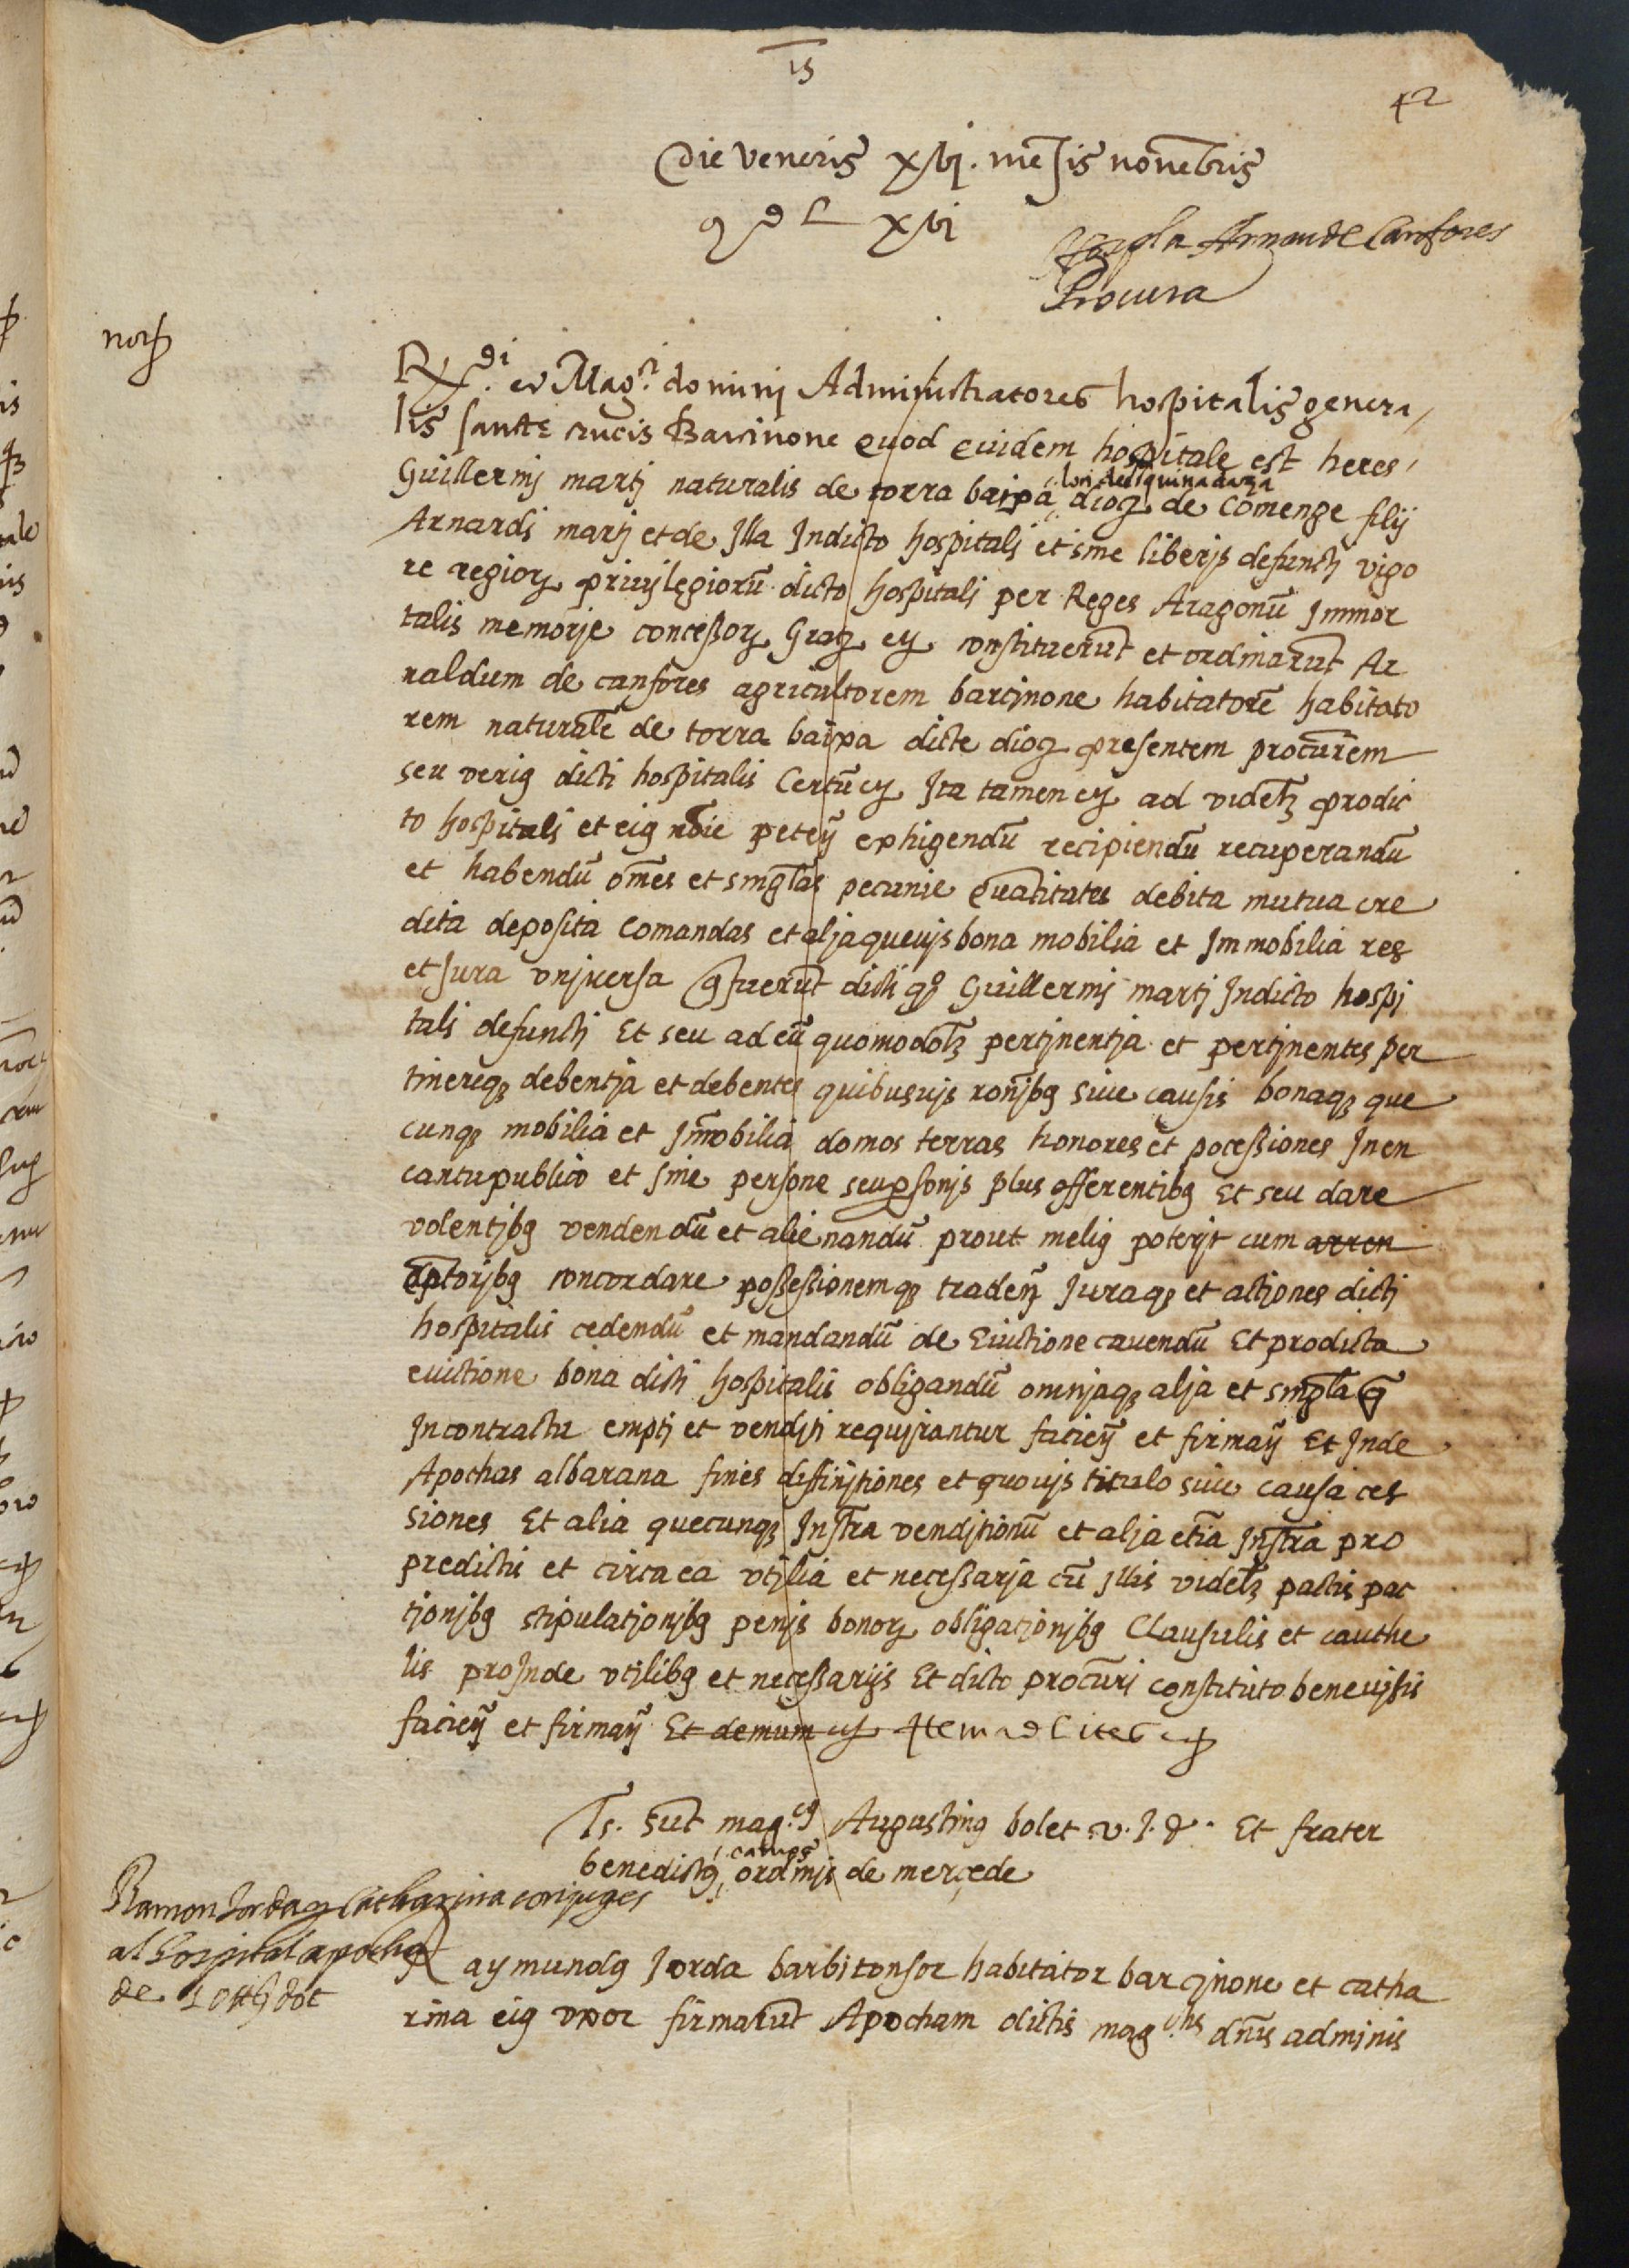 15
42
Die veneris xvj. mēsis novēbris
xvj
Arnau de Canfores
Procura
R.di et Mag.ci dominj Administratores hospitalis genera
lis sancte crucis Barcinone Quod quidem hospitale est heres
Guillermj martj naturalis de torra baixa dioc. de comenge filij
Arnardi martj et de Illa Indicto hospitalj et sine liberis defunctj vigo
re regiorꝫ privjlegiorū dicto hospitalj per Reges Aragonū Immor
talis memorje concessorꝫ Gratꝫ etc. constituerūt et ordinarūt Ar
naldum de canfores agricultorem barcjnone habitatorē habitato
rem naturalē de torra baixa dicte dioc. presentem procurēm
seu verius dicti hospitalis Certū etc. Ita tamen etc. ad videltꝫ pro dic
to hospitalj et eiꝯ nōie petēn exhigendū recipiendū recuperandū
et habendū om̄es et singl̄as pecunie quātitates debita mutua cre
dita deposita Comandas et alja quevjs bona mobilia et Immobilia res
et Jura vnjversa q̄ fuerūt dicti qº Guillermj martj Indicto hospj
talj defunctj Et seu ad eū quomodoltꝫ pertjnentja et pertjnentes per
tinereqꝫ debentja et debentes quibusvjs ronjbꝯ sive causis bonaqꝫ que
cunqꝫ mobilia et Im̄obilia domos terras honores et pocessiones In en
cantu publico et sine persone seu ꝑsonjs plus offerentibꝯ Et seu dare
volentjbꝯ vendendū et alienandū prout meliꝯ poterjt cum arren
ēptorjbꝯ concordare possessionemqꝫ tradēn Juraqꝫ et actjones dictj
hospitalis cedendū et mandandū de Evictione cavendū Et pro dicta
evictione bona dicti hospitalis obligandū omnjaqꝫ alja et singl̄a q̄
In contractu emptj et venditi requjrantur faciēn et firmān Et Inde
Apochas albarana fines diffinjtiones et quovjs titulo sive causa ces
siones Et alia quecunqꝫ Instr̄a venditionū et alja etiā Instr̄a pro
predictis et circa ea vtjlia et necessarja cū Illis videltꝫ pactis pac
tjonjbꝯ stipulatjonjbꝯ penjs bonorꝫ obligationjbꝯ Clausulis et cauthe
lis proInde vtjlibꝯ et necessarijs Et dicto procūri constituto benevjsis
faciēn et firmān Et demum etc. Item ad lites etc.
Ts. sūt mag.cꝯ Augustinꝯ bolet v. J. d. Et frater
benedictꝯ camps ordinjs de merçede
Ramon Jorda y Catharina conjuges
al hospital apocha
de
Raymundꝯ Jorda barbitonsor habitator barcjnone et catha
rina eiꝯ vxor firmarūt Apocham dictis mag.cis dn̄is adminis